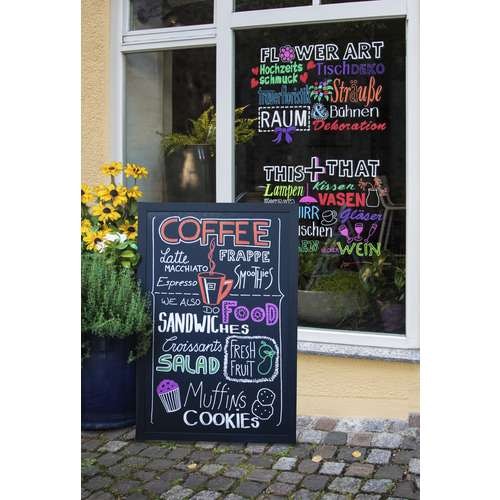 FLOWER ART
Hochzeits
schmuck
TischDEKO
Trauerfloristik
Sträuße
RAUM
& Bühnen
Dekoration
THIS + THAT
Lampen
Kissen
VASEN
Gläser
WEIN
COFFEE
Latte
MACCHIATO
FRAPPE
Espresso
Smoothies
WE ALSO
DO
FOOD
SANDWICHES
Croissants
SALAD
FRESH
FRUIT
Muffins
COOKIES